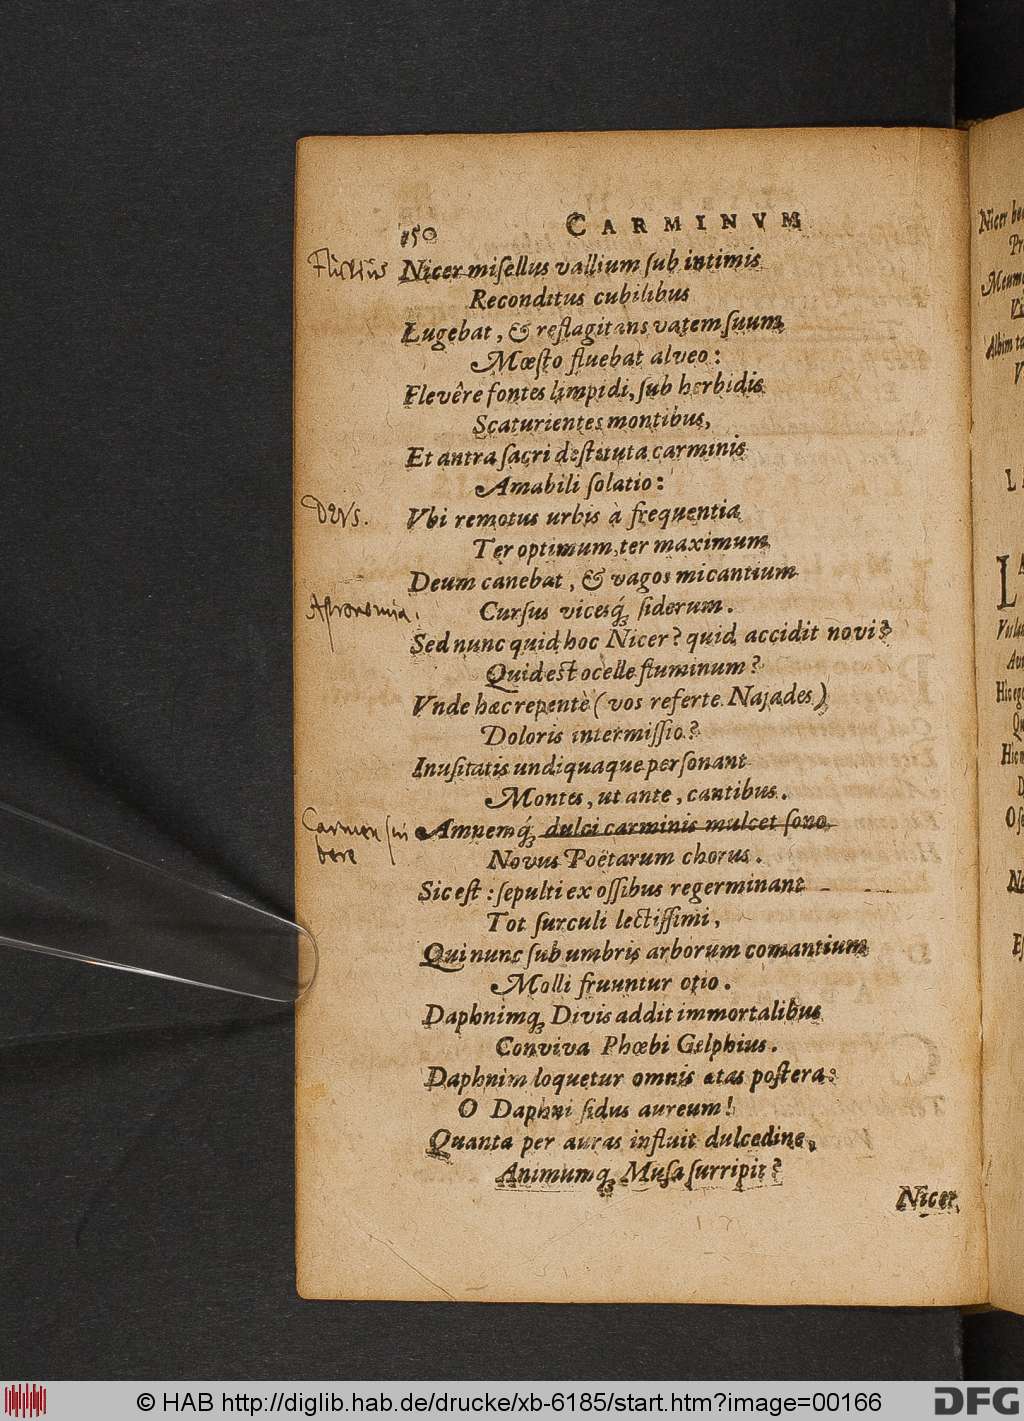 150 CARMINVM
Fluvius
Nicer misellus vallium sub intimis
Reconditus cubilibus
Lugebat, & reflagitans vatem suum
Mœsto fluebat alveo:
Flevêre fontes limpidi, sub herbidis
Scaturientes montibus,
Et antra sacri destituta carminis
Amabili solatio:
Deus.
Vbi remotus urbis a frequentia
Ter optimum, ter maximum
Deum canebat, & vagos micantium
Astronomia.
Cursus vicesq́; siderum.
Sed nunc quid hoc Nicer? quid accidit novi?
Quid est ocelle fluminum?
Vnde hæc repentè (vos referte Najades)
Doloris intermissio?
Inusitatis undiquaque personant
Montes, ut ante, cantibus.
Carmen scribere
Ampemq́; dulci carminis mulcet sono
Novus Poëtarum chorus.
Sic est: sepulti ex ossibus regerminant
Tot surculi lectissimi,
Qui nunc sub umbris arborum comantium
Molli fruuntur otio.
Daphnimq; Divis addit immortalibus
Conviva Phœbi Gelphius.
Daphnim loquetur omnis ætas postera:
O Daphni sidus aureum!
Quanta per auras influit dulcedine,
Animumq; Musa surripit?
Nicer
© HAB http://diglib.hab.de/drucke/xb-6185/start.htm?image=00166
DFG